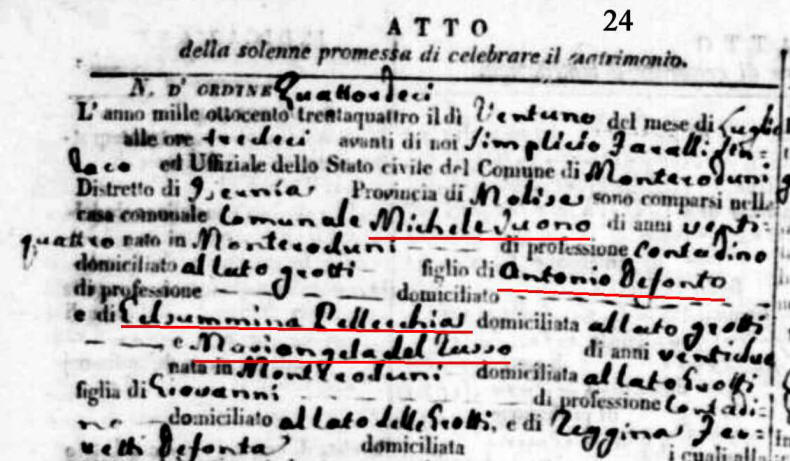 ATTO 24
della solenne promessa di celebrare il matrimonio.
N. D' ORDINE Quattordeci
L' anno mille ottocento trentaquattro il dì Ventuno del mese di Luglio
alle ore tredeci avanti di noi Simplicio Sin=
daco ed Uffiziale dello Stato civile del Comune di Monteroduni
Distretto di Isernia Provincia di Molise sono comparsi nella
casa comunale Comunale Michele di anni venti=
quattro nato in Monteroduni di professione Contadino
domiciliato al lato grotti figlio di Antonio Defonto
di professione domiciliato
e di Gelsummina Pellecchia domiciliata al lato grotti
e Mariangela del Russo di anni ventidue
nata in Monteroduni domiciliata al lato Grotti
figlia di Giovanni di professione Contadi=
no domiciliato al lato delle Grotti, e di Reggina
Defonta domiciliata
i quali alla